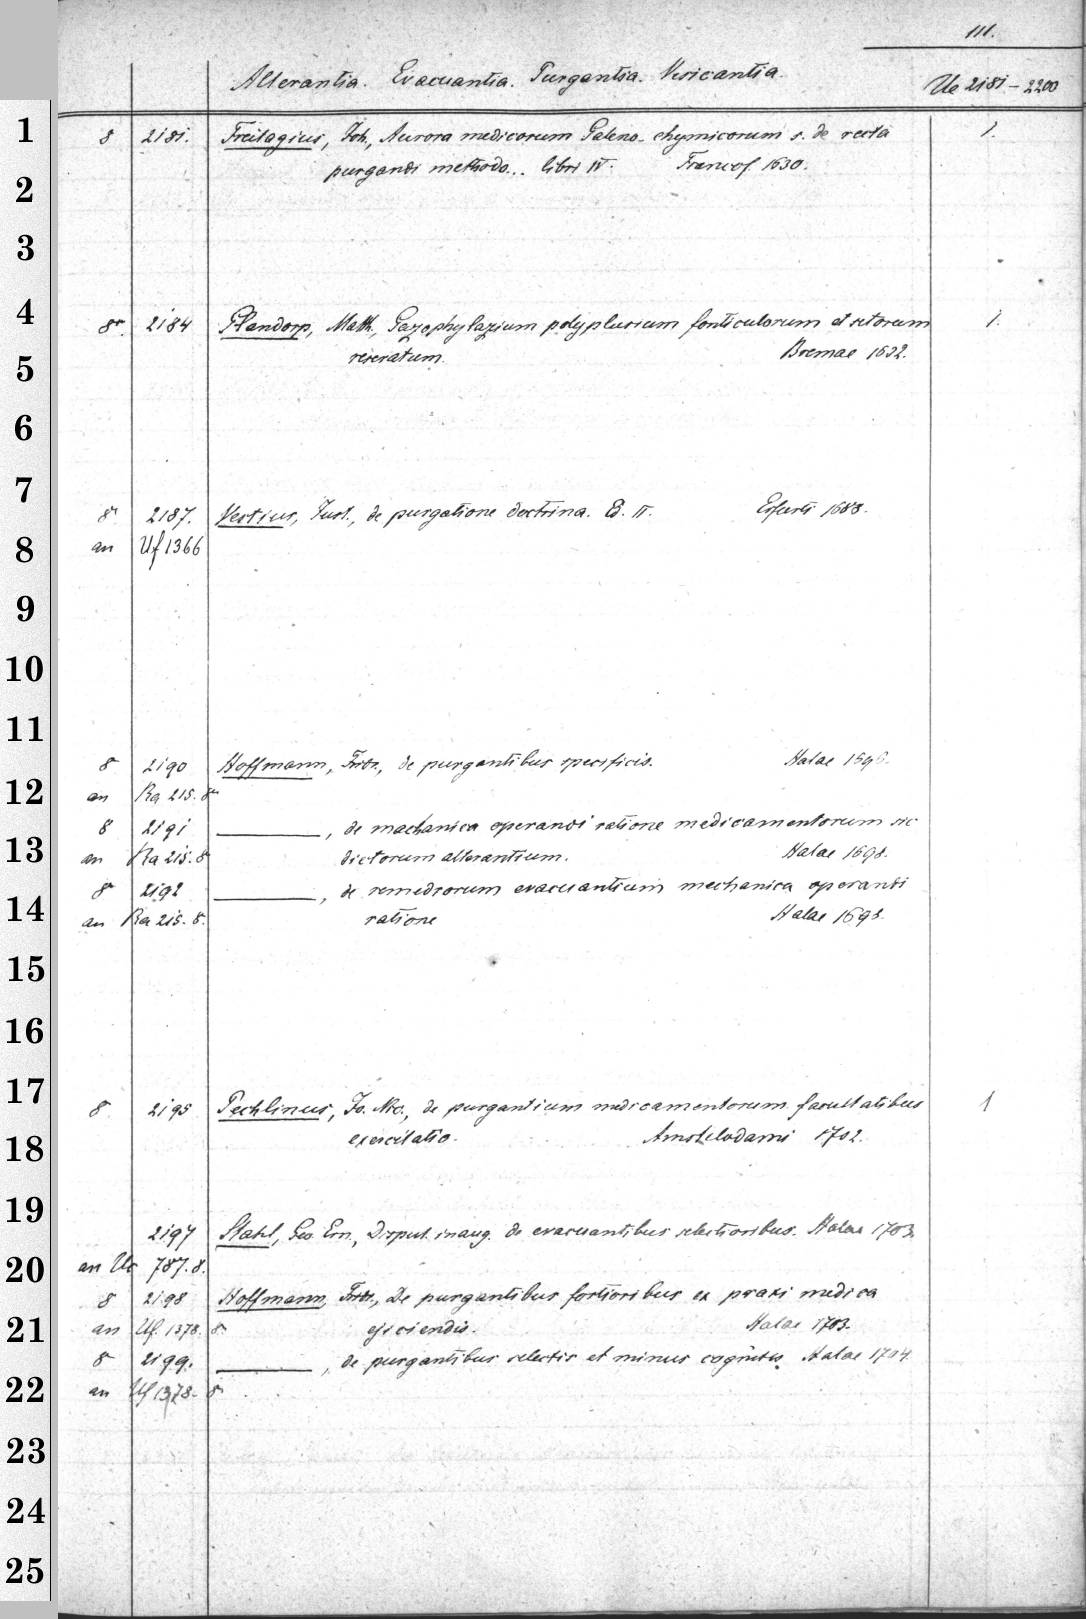 111.
Alterantia. Evacuantia. Purgantia. Vesicantia.
Ue 2181 – 2200
1
8 2181. Freitagius, Joh., Aurora medicorum Galeno-chymicorum s. de recta 1.
purgandi methodo... libri IV. Francof. 1630.
2
3
4
8° 2184 Glandorp, Math., Gazophylazium polyplusium fonticulorum et setorum 1.
reseratum. Bremae 1632.
5
6
7
8° 2187. Vestius, Just., de purgatione doctrina. Ed. II. Erfurti 1688.
8
an Uf 1366
9
10
11
8 2190 Hoffmann, Frdr., de purgantibus specificis. Halae 1696.
12
an Ra 215. 8°
8 2191 ———, de machanica operandi ratione medicamentorum sic
13
an Ra 215. 8 dictorum alterantium. Halae 1698.
8° 2192 ———, de remediorum evacuantium mechanica operandi
14
an Ra 215. 8. ratione Halae 1698
15
16
17
8. 2195 Pechlinus, Jo. Nic., de purgantium medicamentorum facultatibus 1
exercitatio. Amstelodami 1702.
18
19
2197 Stahl, Geo. Ern., Disput. inaug. de evacuantibus selectioribus. Halae 1703.
20
an Uc 787. 8.
8 2198 Hoffmann, Frdr., De purgantibus fortioribus ex praxi medica
21
an Uf. 1378. 8. ejiciendis. Halae 1703.
8° 2199. ———, de purgantibus selectis et minus cognitis. Halae 1704.
22
an Uf 1378. 8
23
24
25